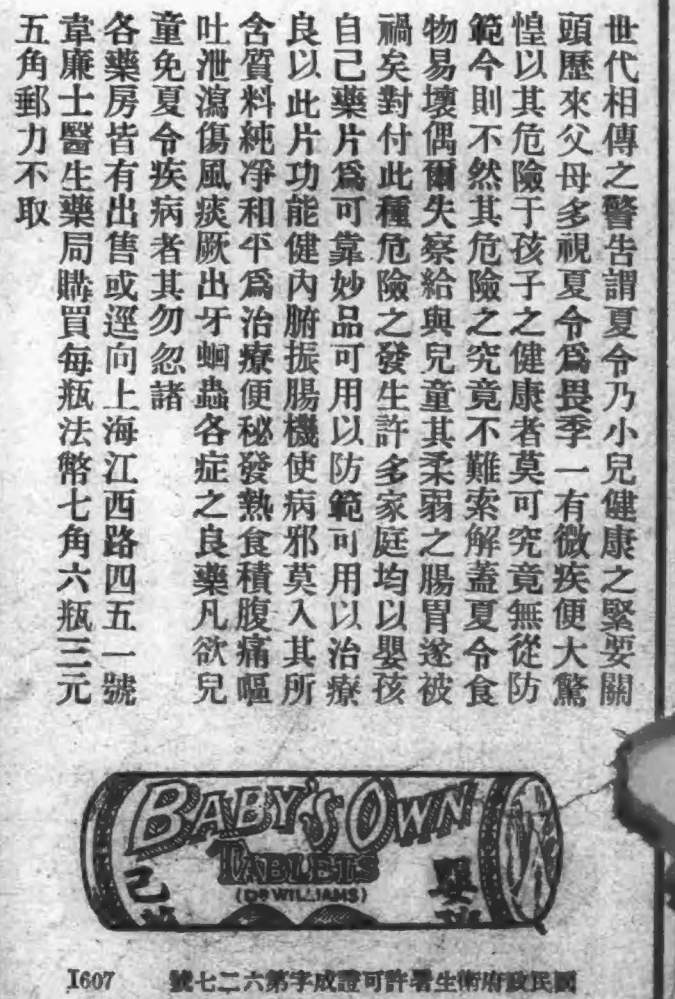 世代相傳之警告謂夏令乃小兒健康之緊要關
頭歷來父母多視夏令爲畏季一有微疾便大驚
惶以其危險于孩子之健康者莫可究竟無從防
範今則不然其危險之究竟不難索解蓋夏令食
物易壞偶爾失察給與兒童其柔弱之腸胃遂被
禍矣對付此種危險之發生許多家庭均以嬰孩
自己藥片爲可靠妙品可用以防範可用以治療
良以此片功能健內腑振腸機使病邪莫入其所
含質料純凈和平爲治療便秘發熱食積腹痛嘔
吐泄瀉傷風痰厥出牙蛔蟲各症之良藥凡欲兒
童免夏令疾病者其勿忽諸
各藥房皆有出售或逕向上海江西路四五一號
韋廉士醫生藥局購買每瓶法幣七角六瓶三元
五角郵力不取
BABY'S OWN
TABLETS
(DR WILLIAMS)
嬰
己
國民政府衛生署許可證成字第六二七號
I607